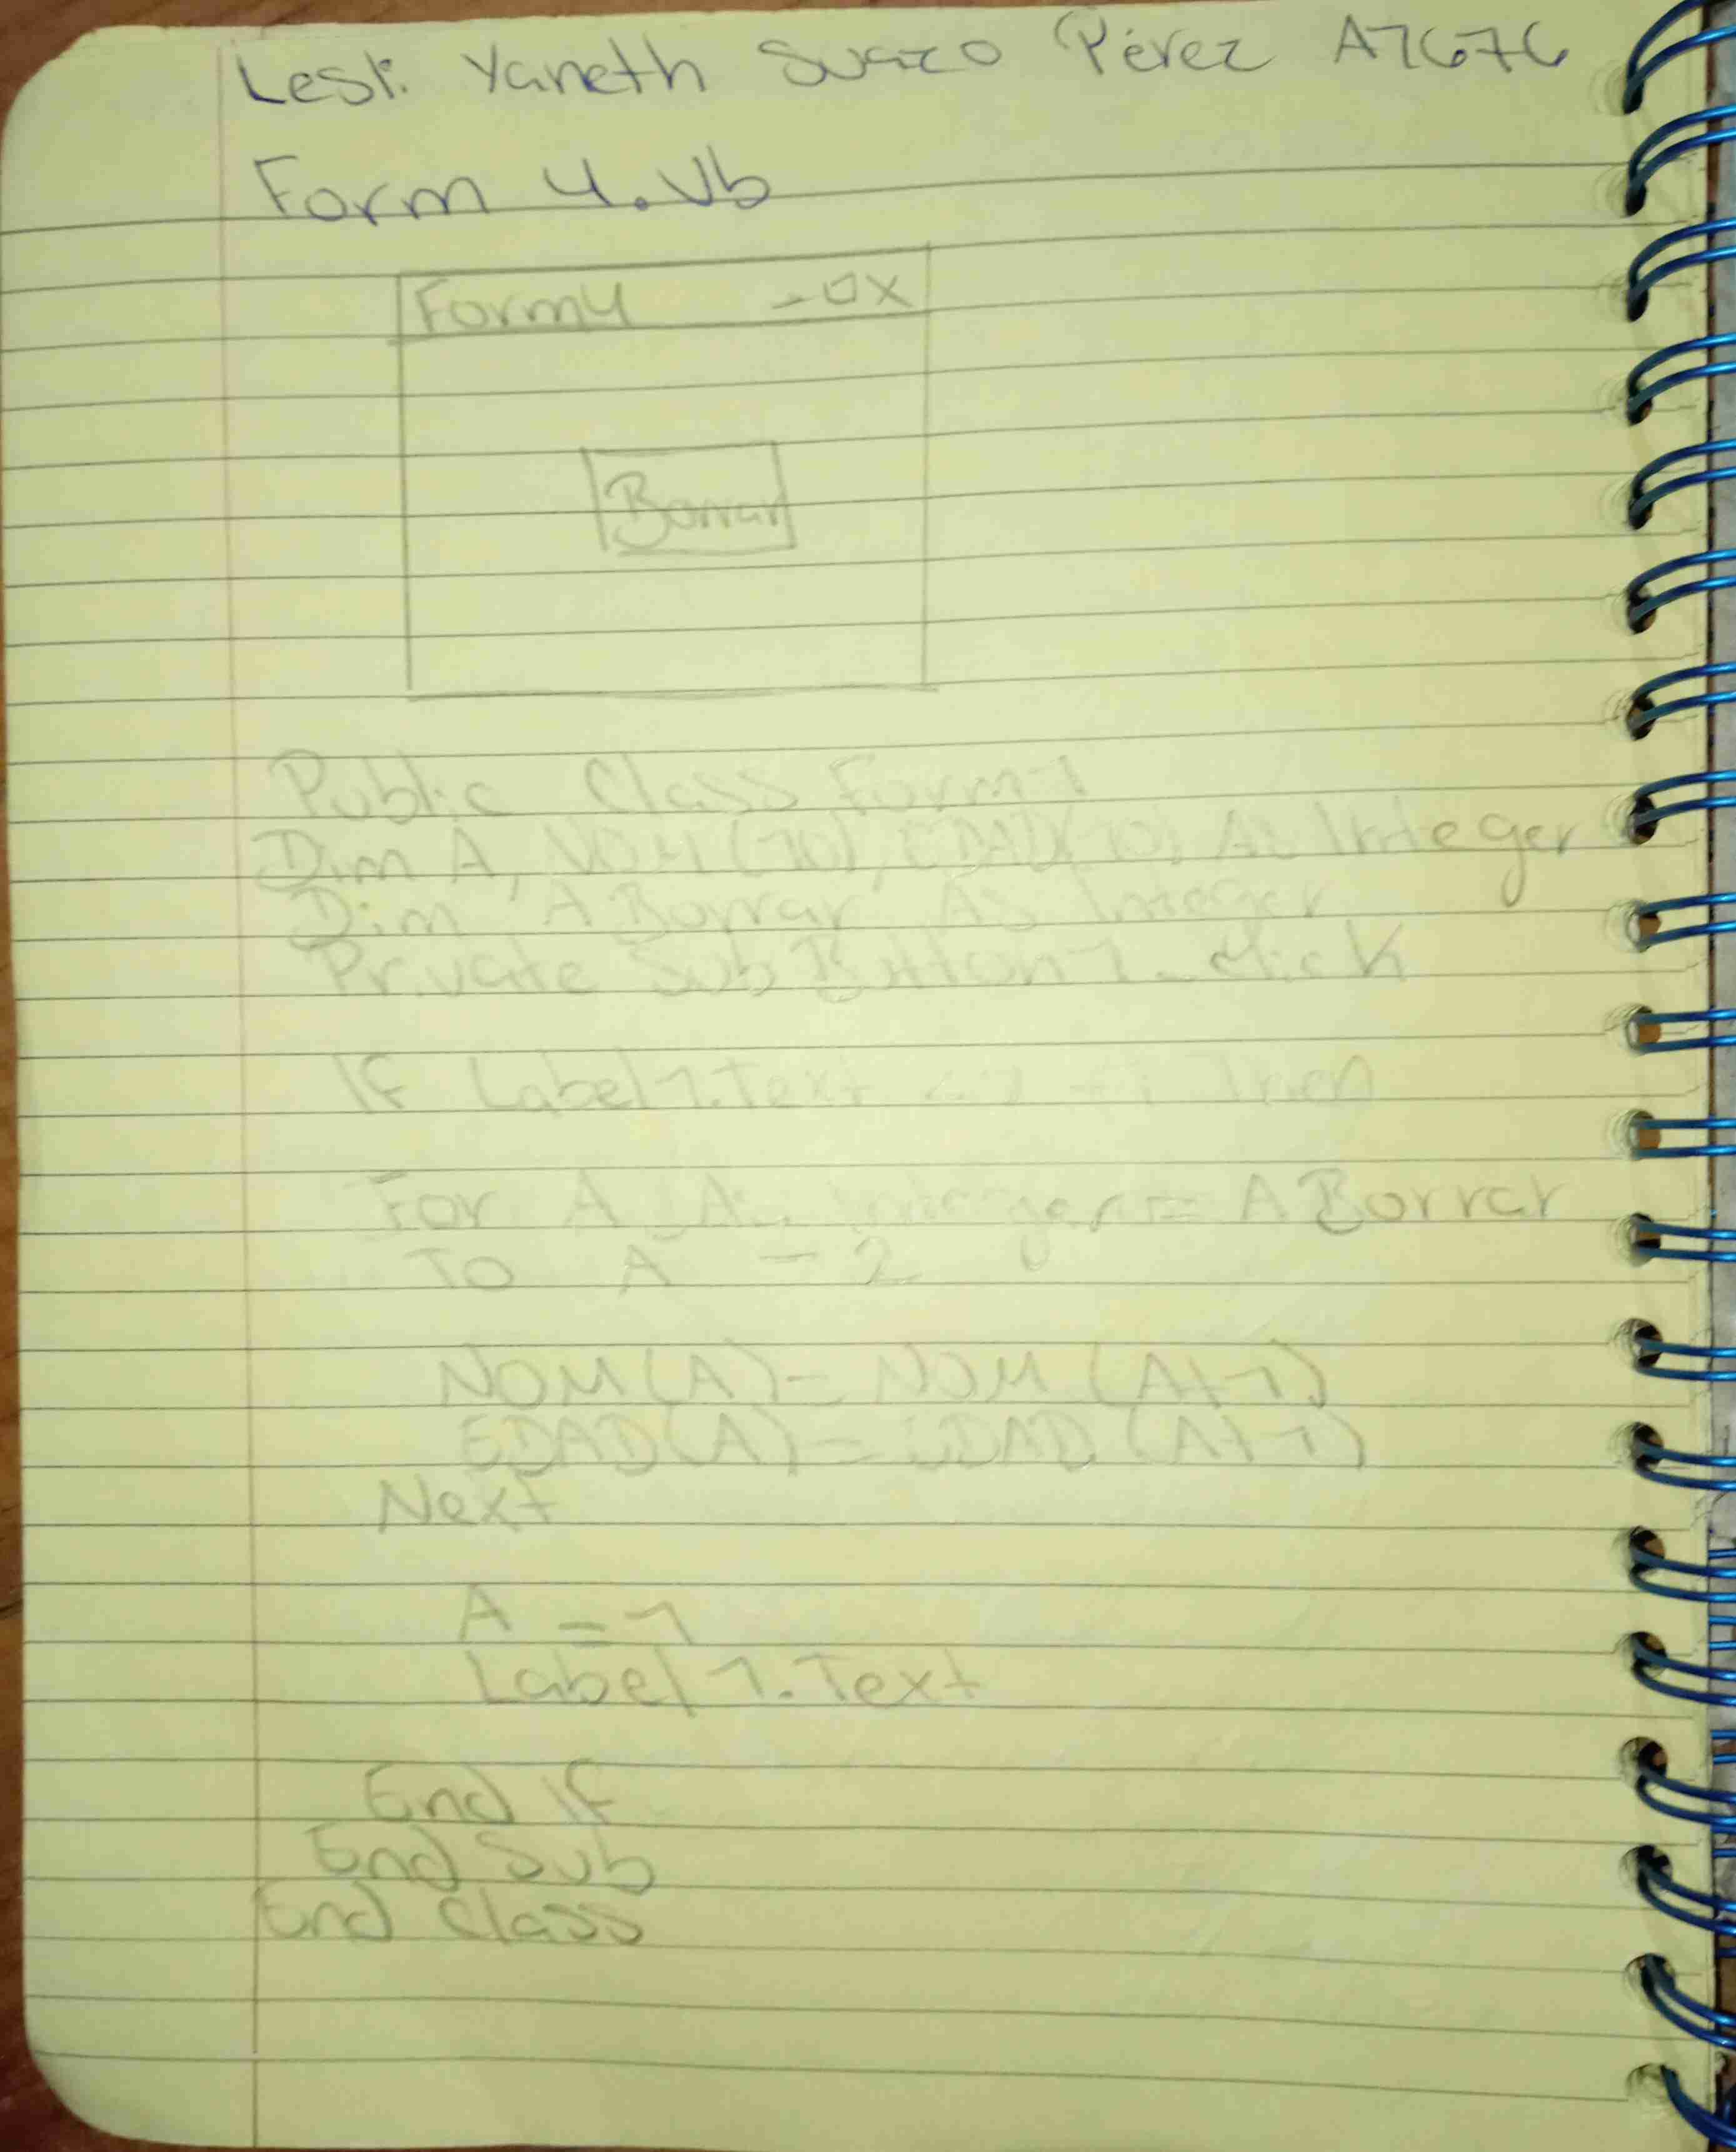 Lesli Yaneth Suazo Pérez A7676
Form 4.vb
Form4 - □ X
Borrar
Public Class Form1
Dim A, NOM(10), EDAD(10) As Integer
Dim ABorrar As Integer
Private Sub Button1_click
If Label1.Text Then
For A As Integer = ABorrar
To A - 2
NOM(A) = NOM(A+1)
EDAD(A) = EDAD(A+1)
Next
A -= 1
Label1.Text
End If
End Sub
End Class